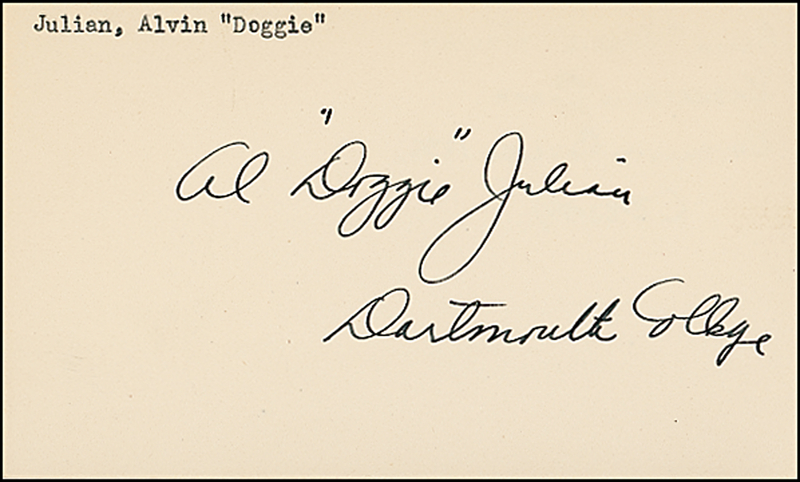 Julian, Alvin "Doggie"
Al "Doggie" Julian
Dartmouth College